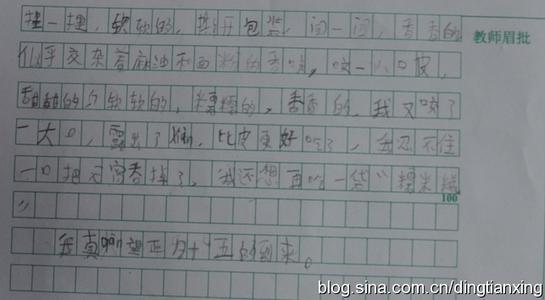 捏一捏，软软的，撕开包装，闻一闻，香香的
似乎交杂着麻油和面粉的香味，咬一小口皮，
甜甜的，软软的，糯糯的，香香的，我又咬了
一大口，露出了馅，比皮更好吃了，我忍不住
一口把它消灭掉了，我还想再吃一袋“糯米糍
”
我真盼望正月十五的到来。
教师眉批
100
blog.sina.com.cn/dingtianxing